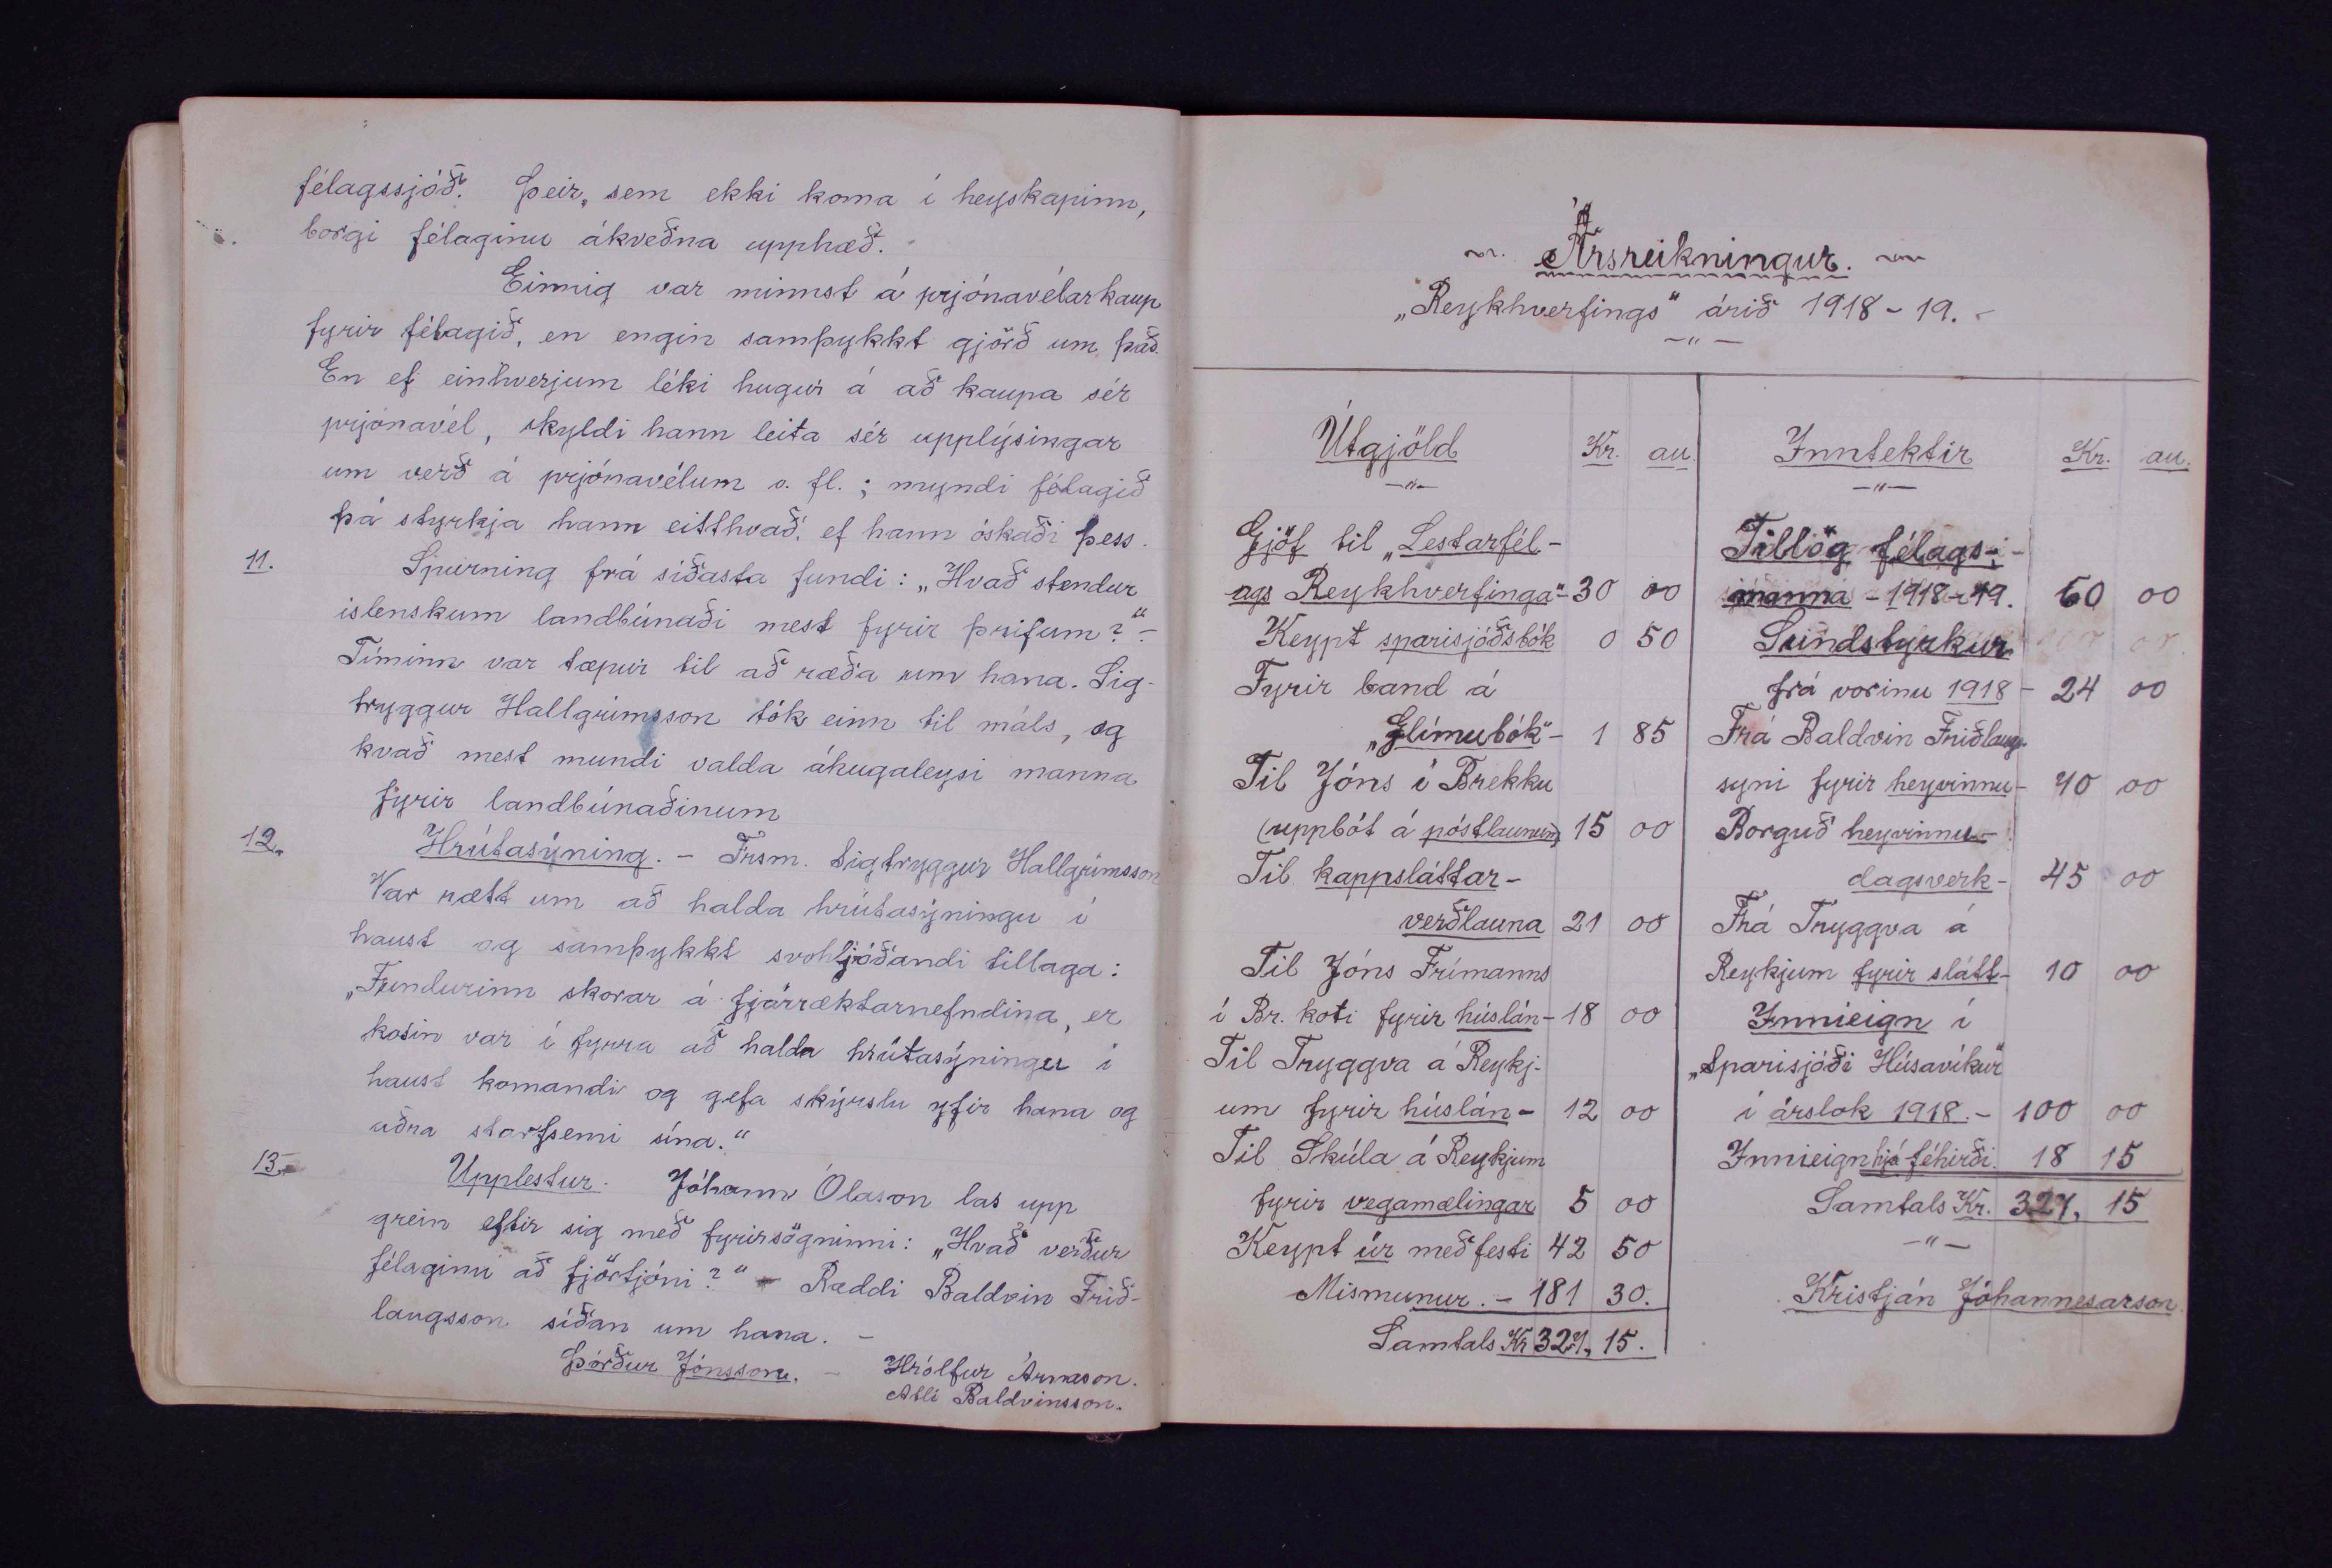 félagssjóði. Þeir, sem ekki koma í heyskapinn,
borgi félaginu ákveðna upphæð.
Einnig var minnst á prjónavélarkaup
fyrir félagið, en engin samþykkt gjörð um það.
En ef einhverjum léki hugur á að kaupa sér
prjónavél, skyldi hann leita sér upplýsingar
um verð á prjónavélum o. fl.; myndi félagið
þá styrkja hann eitthvað, ef hann óskaði þess.
11. Spurning frá síðasta fundi: „Hvað stendur
íslenskum landbúnaði mest fyrir þrifum?“ -
Tíminn var tæpur til að ræða um hana. Sig-
tryggur Hallgrímsson tók einn til máls, og
kvað mest mundi valda áhugaleysi manna
fyrir landbúnaðinum
12. Hrútasýning. - Frsm. Sigtryggur Hallgrímsson
Var rætt um að halda hrútasýningu í
haust og samþykkt svohljóðandi tillaga:
„Fundurinn skorar á fjárræktarnefndina, er
kosin var í fyrra að halda hrútasýningu í
haust komandi og gefa skýrslu yfir hana og
aðra starfsemi sína.“
13. Upplestur. Jóhann Ólason las upp
grein eftir sig með fyrirsögninni: „Hvað verður
félaginu að fjörtjóni?“ - Ræddi Baldvin Frið-
laugsson síðan um hana. -
Þórður Jónsson. - Hrólfur Árnason.
Atli Baldvinsson.
Ársreikningur.
„Reykhverfings“ árið 1918 - 19. -
- „ -
Útgjöld Kr. au.
- „ -
Gjöf til „Lestarfél-
ags Reykhverfinga“ - 30 00
Keypt sparisjóðsbók 0 50
Fyrir band á
„Glímubók“ - 1 85
Til Jóns í Brekku
(uppbót á póstlaunum) 15 00
Til kappsláttar-
verðlauna 21 00
Til Jóns Frímanns
í Br. koti fyrir húslán - 18 00
Til Tryggva á Reykj-
um fyrir húslán - 12 00
Til Skúla á Reykjum
fyrir vegamælingar 5 00
Keypt úr með festi 42 50
Mismunur. - 181 30.
Samtals Kr 327, 15.
Inntektir Kr. au.
- „ -
Tillög félags-
manna - 1918 - 19. 60 00
Sundstyrkur
frá vorinu 1918 - 24 00
Frá Baldvin Friðlaugs-
syni fyrir heyvinnu - 70 00
Borguð heyvinnu-
dagsverk - 45 00
Frá Tryggva á
Reykjum fyrir slátt - 10 00
Innieign í
„Sparisjóði Húsavíkur“
í árslok 1918. - 100 00
Innieign hjá féhirði. 18 15
Samtals Kr. 327, 15
- „ -
Kristján Jóhannesarson.